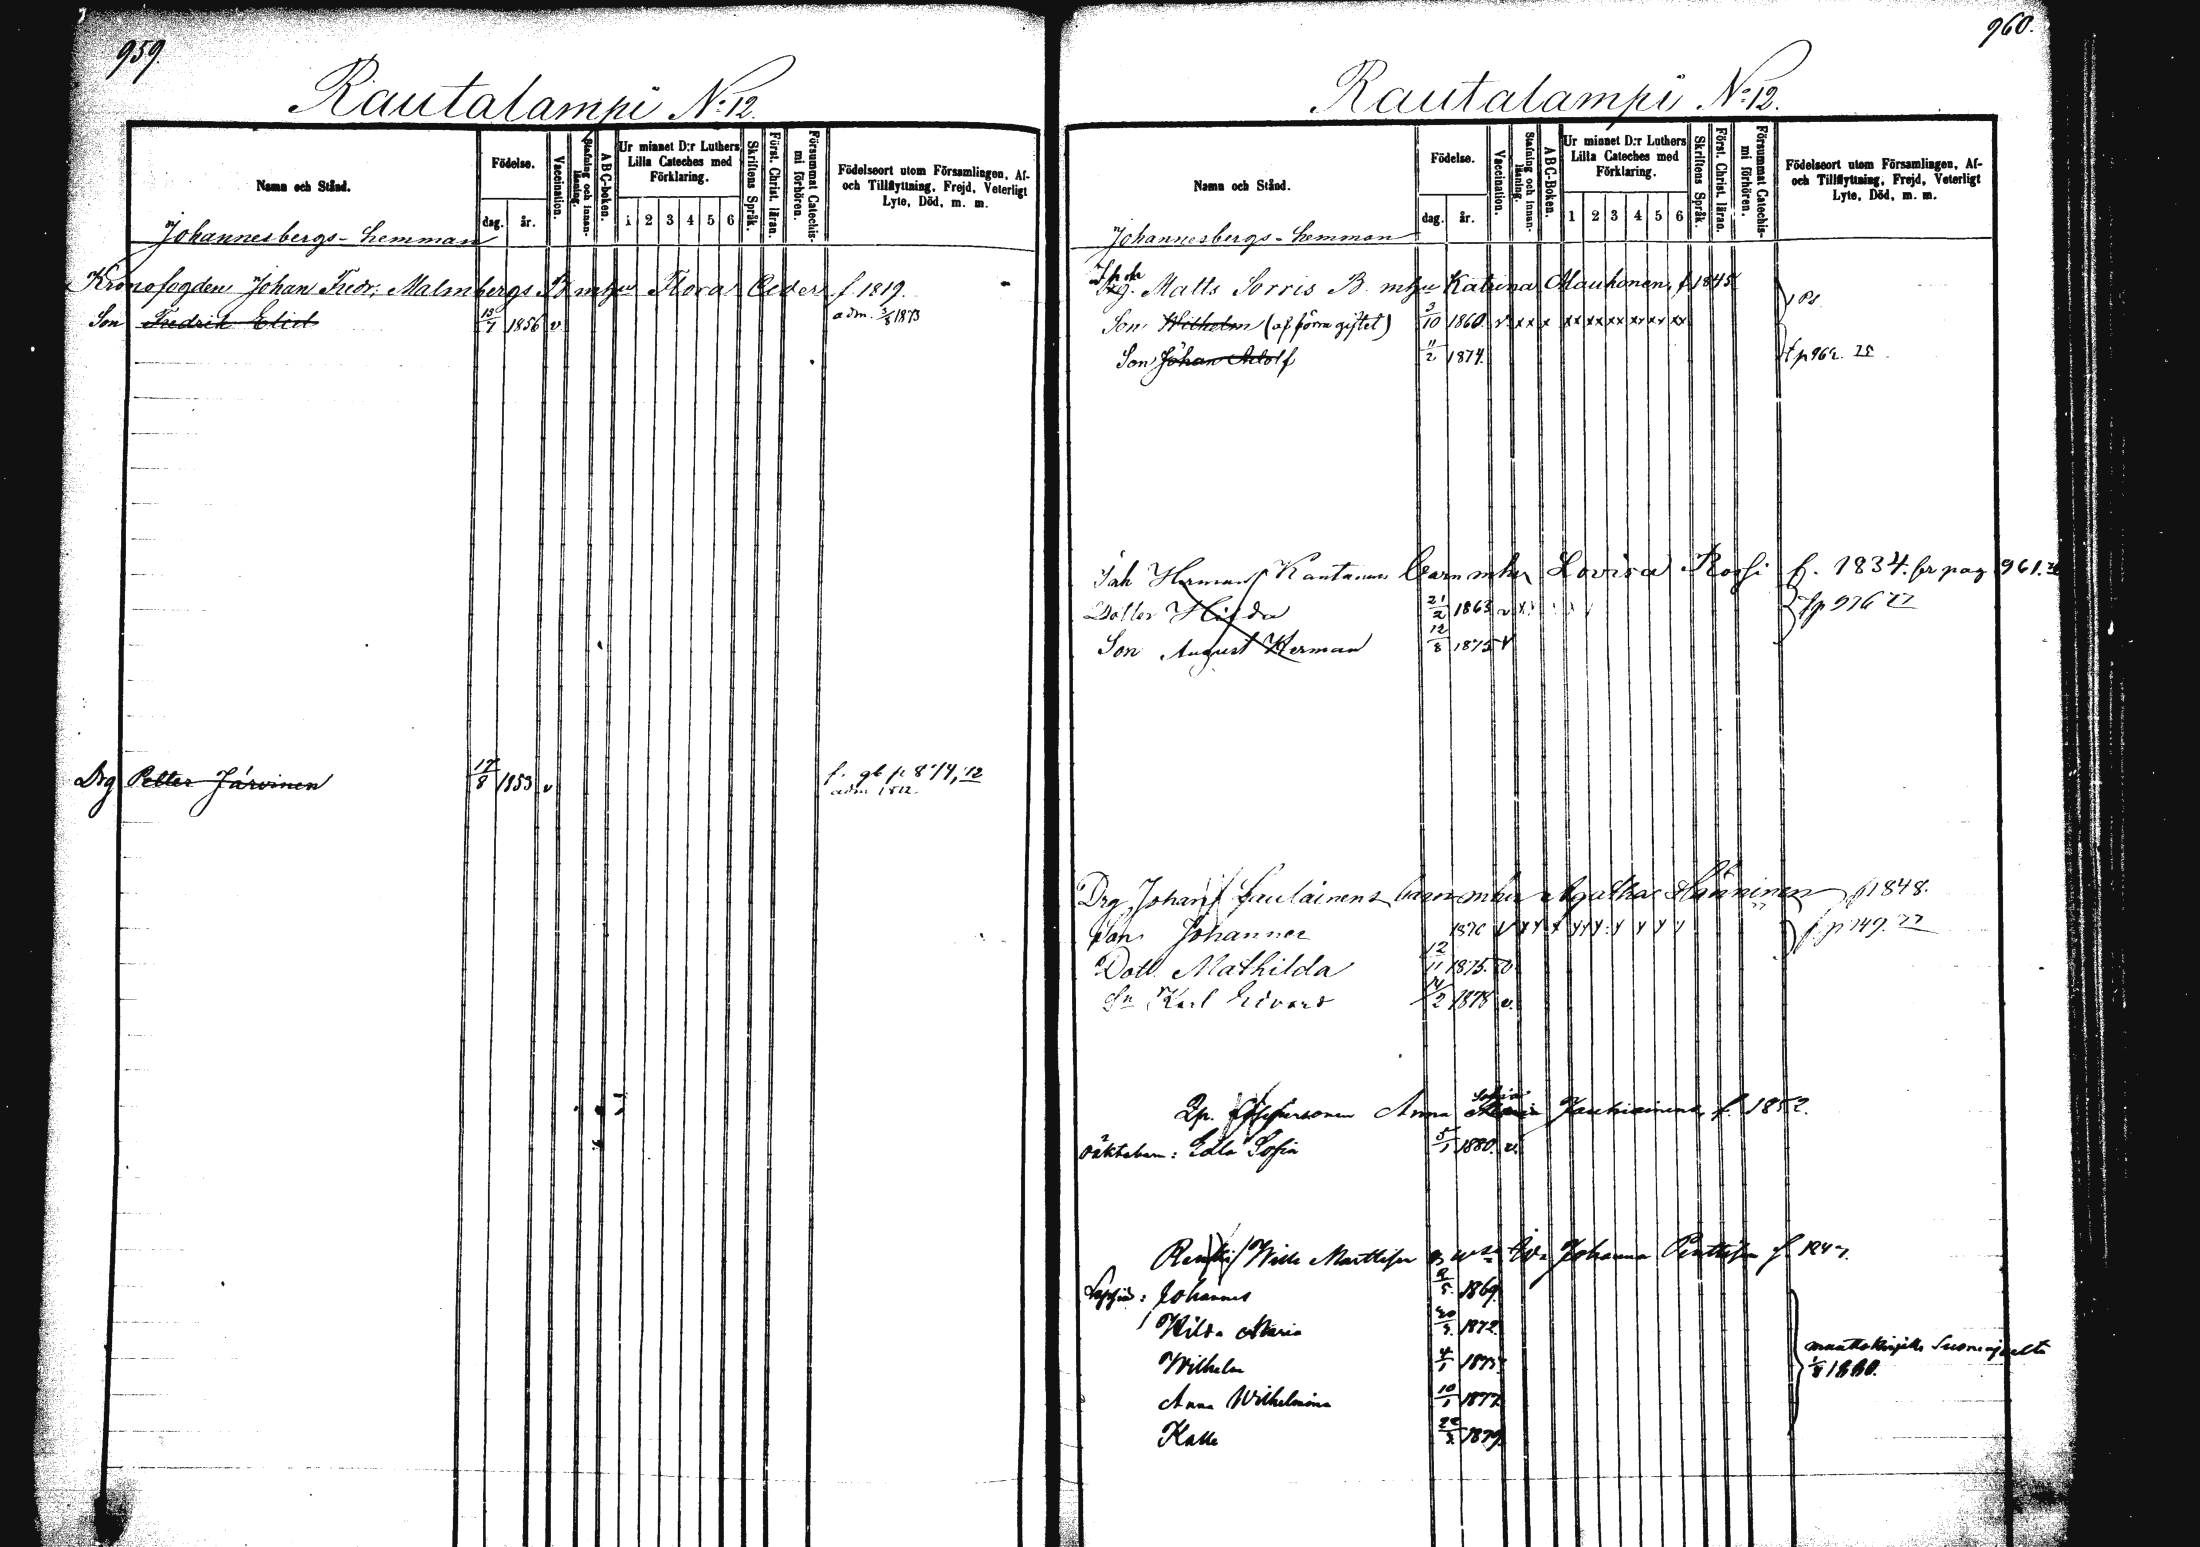 959.
Rautalampi No: 12.
Namn och Stånd.
Födelse.
dag. år.
Vaccination.
Stafning och innanläsning.
ABC-boken.
Ur minnet D:r Luthers Lilla Cateches med Förklaring.
1 2 3 4 5 6
Skriftens Språk.
Först. Christ. läran.
Försummat Catechismi förhören.
Födelseort utom Församlingen, Af- och Tillflyttning, Frejd, Veterligt Lyte, Död, m. m.
Johannesbergs-hemman
Kronofogden Johan Fredr: Malmbergs B mhu Flora Ceder f 1819.
Son Fredrik 13/7 1856 v adm. 3/8 1873
Drg Petter Järvinen 17/8 1853 v f. gb p 874, 72
adm 1872.
960.
Rautalampi No: 12.
Namn och Stånd.
Födelse.
dag. år.
Vaccination.
Stafning och innanläsning.
ABC-Boken.
Ur minnet D:r Luthers Lilla Cateches med Förklaring.
1 2 3 4 5 6
Skriftens Språk.
Först. Christ. läran.
Försummat Catechismi förhören.
Födelseort utom Församlingen, Af- och Tillflyttning, Frejd, Veterligt Lyte, Död, m. m.
Johannesbergs-hemman
Matts Sorris B. mhu Katrina Maukonen, f 1845
Son Wilhelm (af förra giftet) 3/10 1860. v xx x xx xx xx xx xx xx
Son Johan Adolf 11/2 1874. f p 962. 75
Joh Herman Kantanens barn mhu Lovisa Rossi f. 1834. fr pag 961.
Dotter Hilda 21/2 1863 v f p 976 77
Son August Herman 12/8 1875 v
Drg Johan Laulainens barn mhu Agatha Hänninen f 1848.
Son Johannes 1870 v f p 749. 77
Dott. Mathilda 12/11 1875. v.
Sn Karl Edvard 14/2 1878 v.
Qp. Anna Sofia Jauhiainen, f. 1852.
oäktabarn: Edla Sofia 5/1 1880. v.
Renki Wille Marttisen Johanna Penttisen f. 1847.
Lapsia: Johannes 1869.
Hilda Maria 1872.
Wilhelm 1875.
Anna Wilhelmina 10/1 1877.
Kalle 1879.
muuttokirjalla Suonenjoelta 1880.